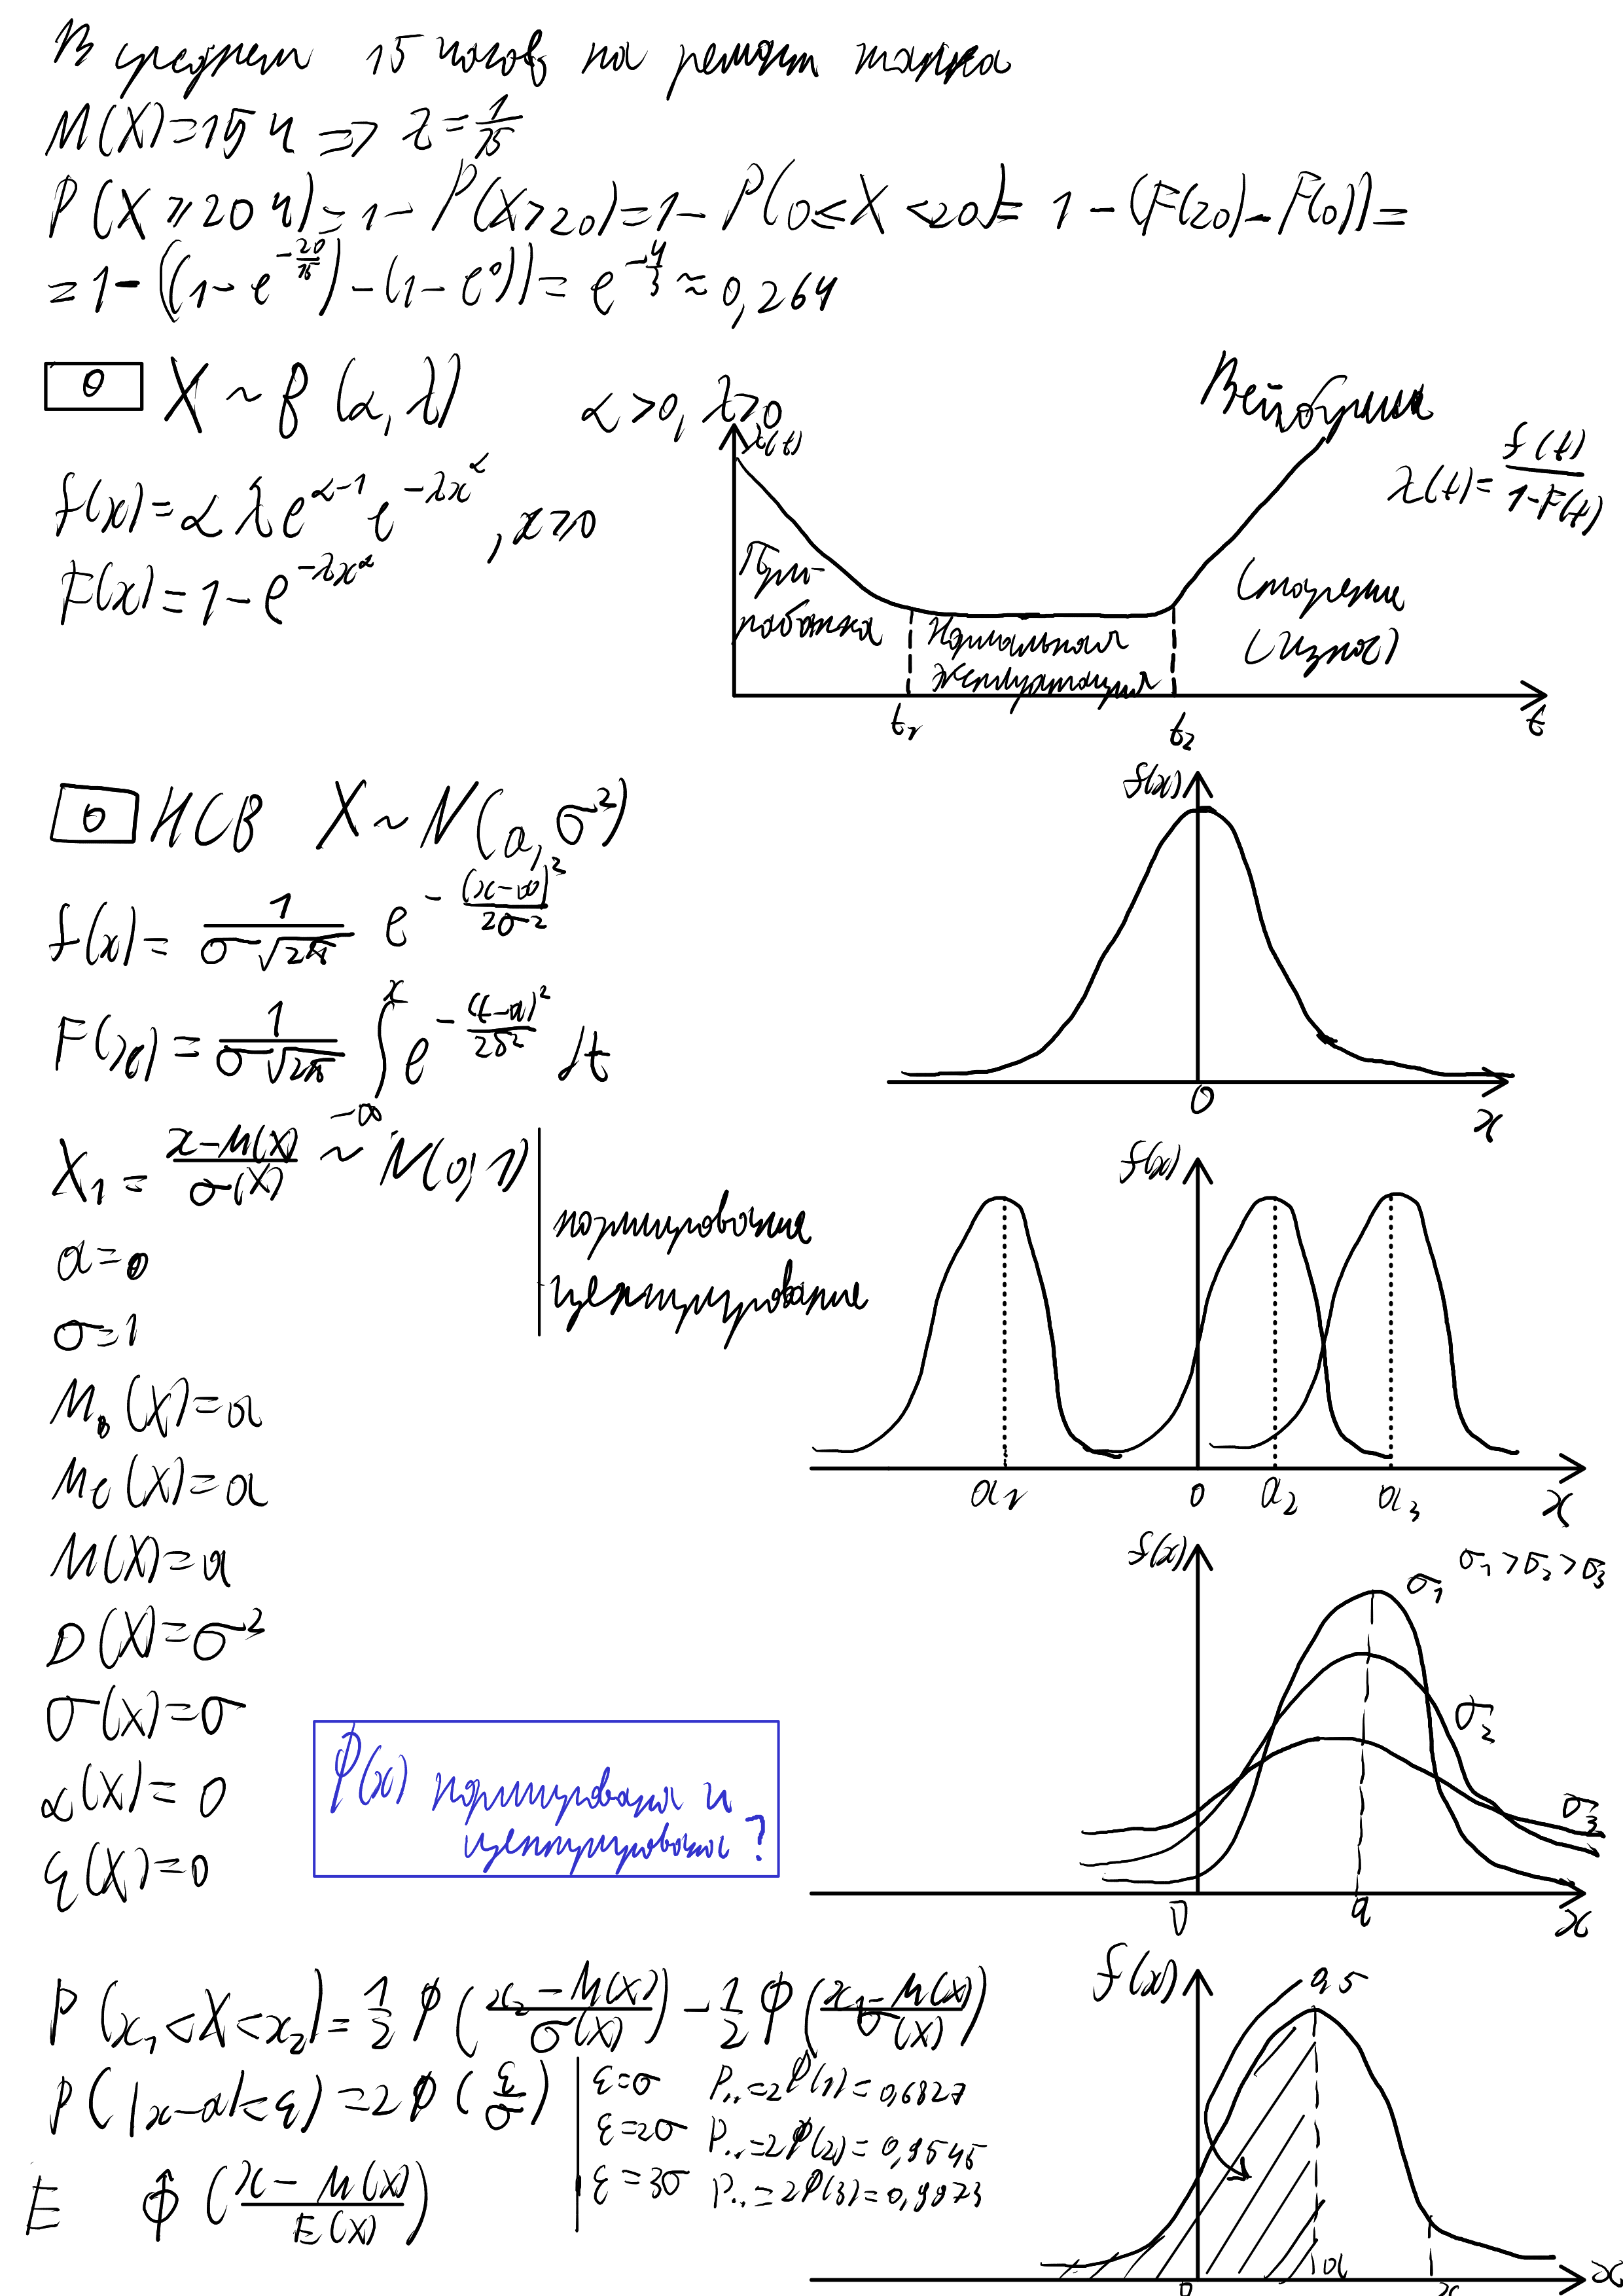 В среднем 15 часов на ремонт танка
M(X)=15 ч => λ=1/15
P(X≥20 ч)=1-P(X>20)=1-P(0≤X<20)=1-(F(20)-F(0))=
=1-((1-e^(-20/15))-(1-e^0))=e^(-4/3)≈0,264
θ X~β(α,λ) α>0, λ>0
Вейбулла
f(x)=αλe^(α-1)e^(-λx^α), x≥0
F(x)=1-e^(-λx^α)
λ(t)
λ(t)=f(t)/(1-F(t))
При-
работка
Нормальная
эксплуатация
Старение
(износ)
t₁ t₂ t
θ НСВ X~N(a,σ²)
f(x)=1/(σ√2π) e^(-(x-a)²/2σ²)
F(x)=1/(σ√2π) ∫_(-∞)^x e^(-(t-a)²/2σ²) dt
f(x)
0 x
X₁=(x-M(X))/σ(X) ~ N(0,1)
нормирование
центрирование
a=0
σ=1
M₀(X)=a
Me(X)=a
M(X)=a
D(X)=σ²
σ(X)=σ
α(X)=0
ε(X)=0
f(x)
a₁ 0 a₂ a₃ x
f(x)
σ₁ σ₁>σ₂>σ₃
σ₂
σ₃
0 a x
Φ(x) нормирована и
центрирована?
P(x₁<X<x₂)=1/2 Φ((x₂-M(X))/σ(X))-1/2 Φ((x₁-M(X))/σ(X))
P(|x-a|<ε)=2Φ(ε/σ)
ε=σ P..=2Φ(1)=0,6827
ε=2σ P..=2Φ(2)=0,9545
ε=3σ P..=2Φ(3)=0,9973
E Φ̂((x-M(X))/E(X))
f(x)
0,5
0 a x x